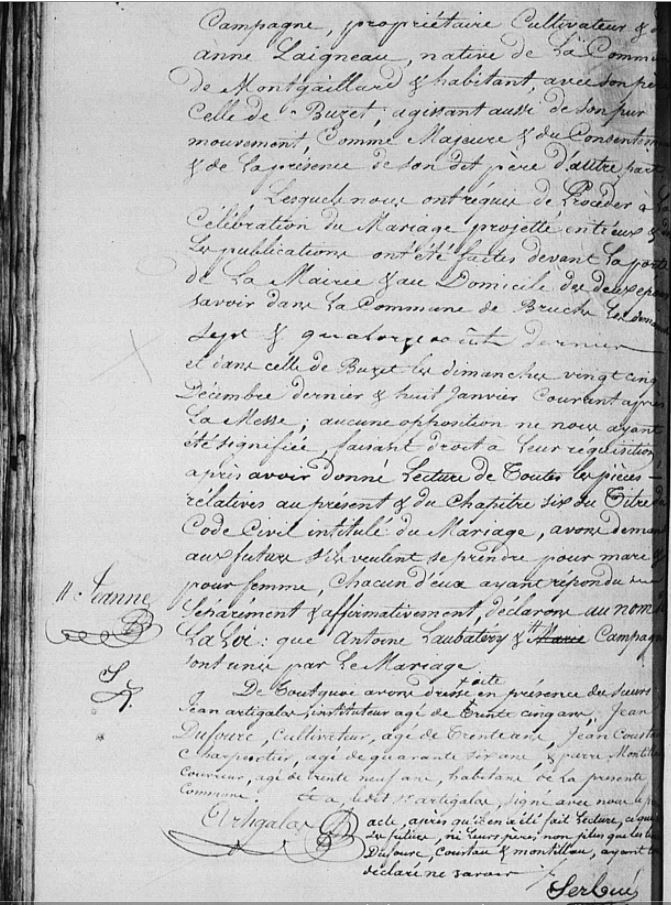 Campagne, propriétaire Cultivateur &
anne Laigneau, native de La Commun
de Montgaillard & habitant, avec son pèr
Celle de Buzet; agissant aussi de son pur
mouvement, Comme Majeure & du Consentem
& de La présence de son dit père d'autre part
Lesquels nous ont réquis de Procéder à L
Célébration du Mariage projetté entr'eux &
Les publications ont été faites devant La porte
de La Mairie & au Domicile des deux épou
savoir dans La Commune de Bruch Les
sept & quatorze août dernier
et dans celle de Buzet les dimanches vingt cinq
Décembre dernier & huit Janvier Courant après
La Messe; aucune opposition ne nous ayant
été signifiée, faisant droit à leur réquisition
après avoir donné Lecture de Toutes les pièces
relatives au présent & du Chapitre six du Titre du
Code Civil intitulé du Mariage, avons deman
aux futurs s'ils veulent se prendre pour mari &
// Jeanne
pour femme, Chacun d'eux ayant répondu
Séparément & affirmativement, déclarons au nom
La Loi: que Antoine Laubatery & // Marie Campagn
sont unis par Le Mariage.
De Tout quoi avons dressé acte en présence des sieurs
Jean artigalas, instituteur agé de trente cinq ans, Jean
Dufourc, Cultivateur, agé de Trente ans, Jean Courtau
Charpentier, agé de quarante six ans, & pierre Montillau
Couvreur, agé de trente neuf ans, habitans de La présente
Commune. Et a, ledit sr artigalas, signé avec nous le p
Artigalas
acte, après qu'il en a été fait Lecture, ce que
Les futurs, ni leurs pères, non plus que les
Dufourc, Courtau & montillau, ayant
déclaré ne savoir
Serbué